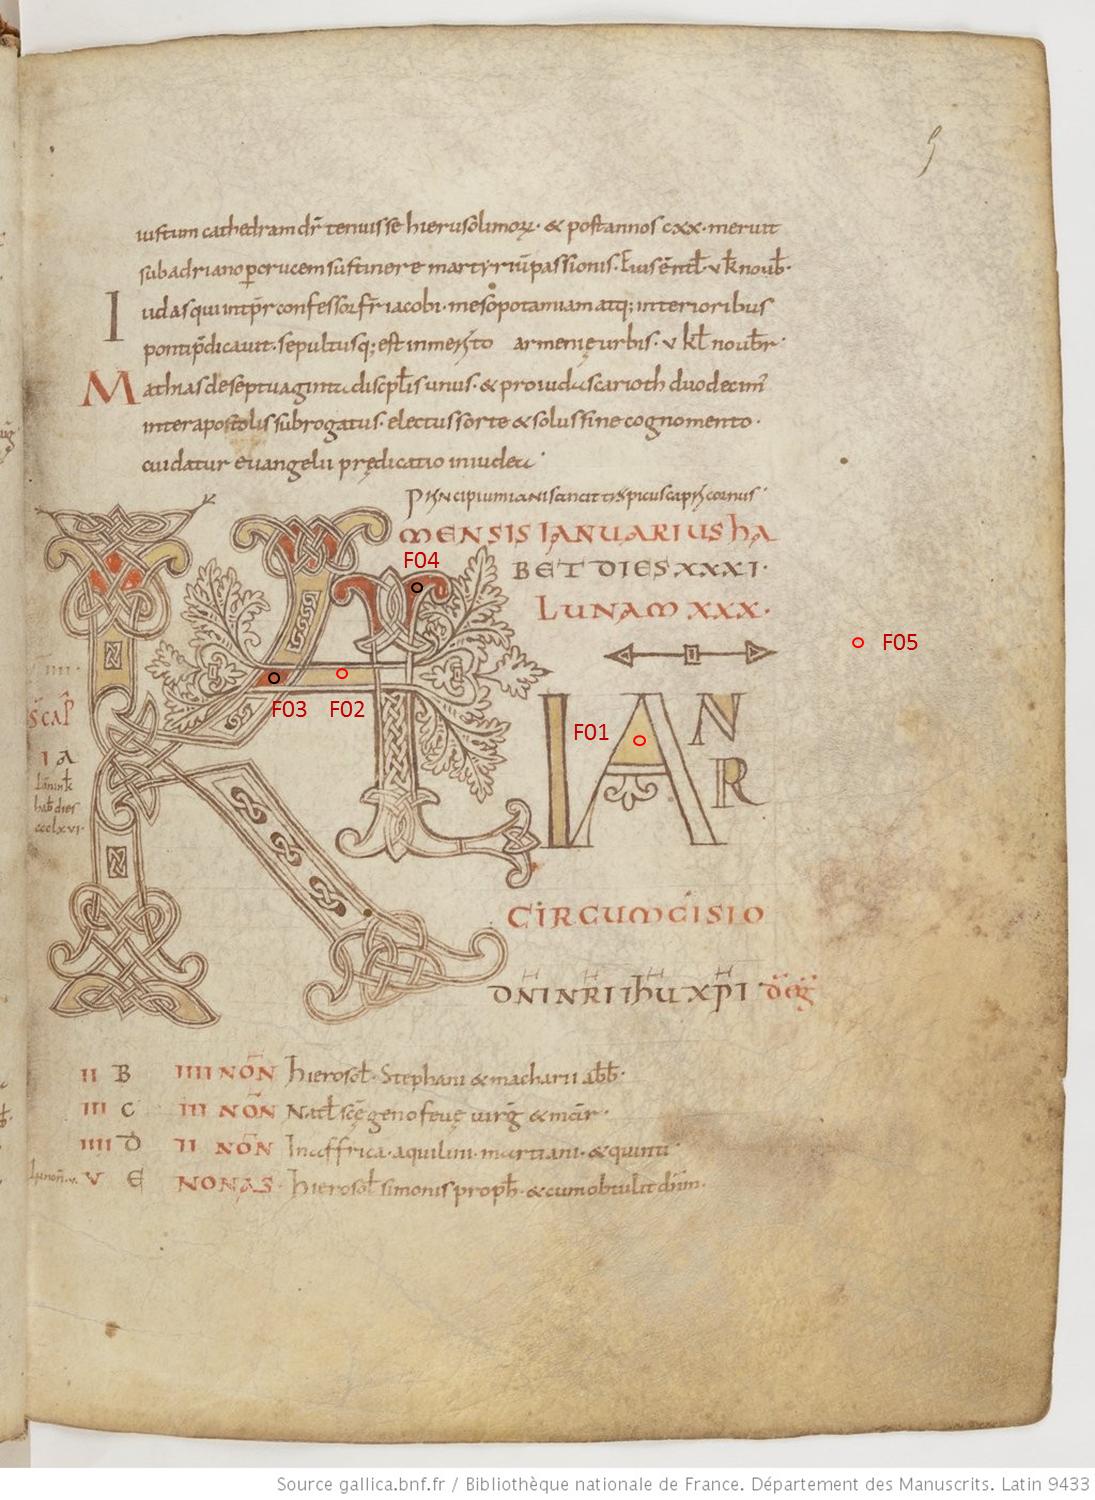 5
iustum cathedram dr̄ tenuisse hierusolimoꝝ· & post annos cxx· meruit
sub adriano ꝑ crucem sustinere martyriū passionis· Eius ēntł· v kł nouƀ·
Iudas qui intp̄r confessor fr̄ iacobi· mesopotamiam atq; interioribus
ponti p̄dicauit· sepultusq; est in merito armenię urbis· v kł nouƀr·
Mathias de septuaginta discipłis unus· & pro iuda scarioth duodecim̄
inter apostolis subrogatus· electus sorte & solus sine cognomento·
cui datur euangelii prędicatio in iudea·
Principium iani sancit tropicus capricornus·
MENSIS IANUARIUS hA
F04
BET DIES XXXI·
LUNAM XXX·
F05
KAL
IIII·
F03 F02
F01
IAN
R
I A
CIRCUMCISIO
DN̄I NRI IHU XPI
II B IIII NON̄ hierosoł· Stephani & macharii abƀ·
III C III NON̄ Natł scę genofeuę uirḡ & mar̄·
IIII D II NON̄ In affrica· aquilini· martiani· & quinti·
V E NONAS· hierosoł simonis propħ· & cum obtulit dn̄m·
Source gallica.bnf.fr / Bibliothèque nationale de France. Département des Manuscrits. Latin 9433